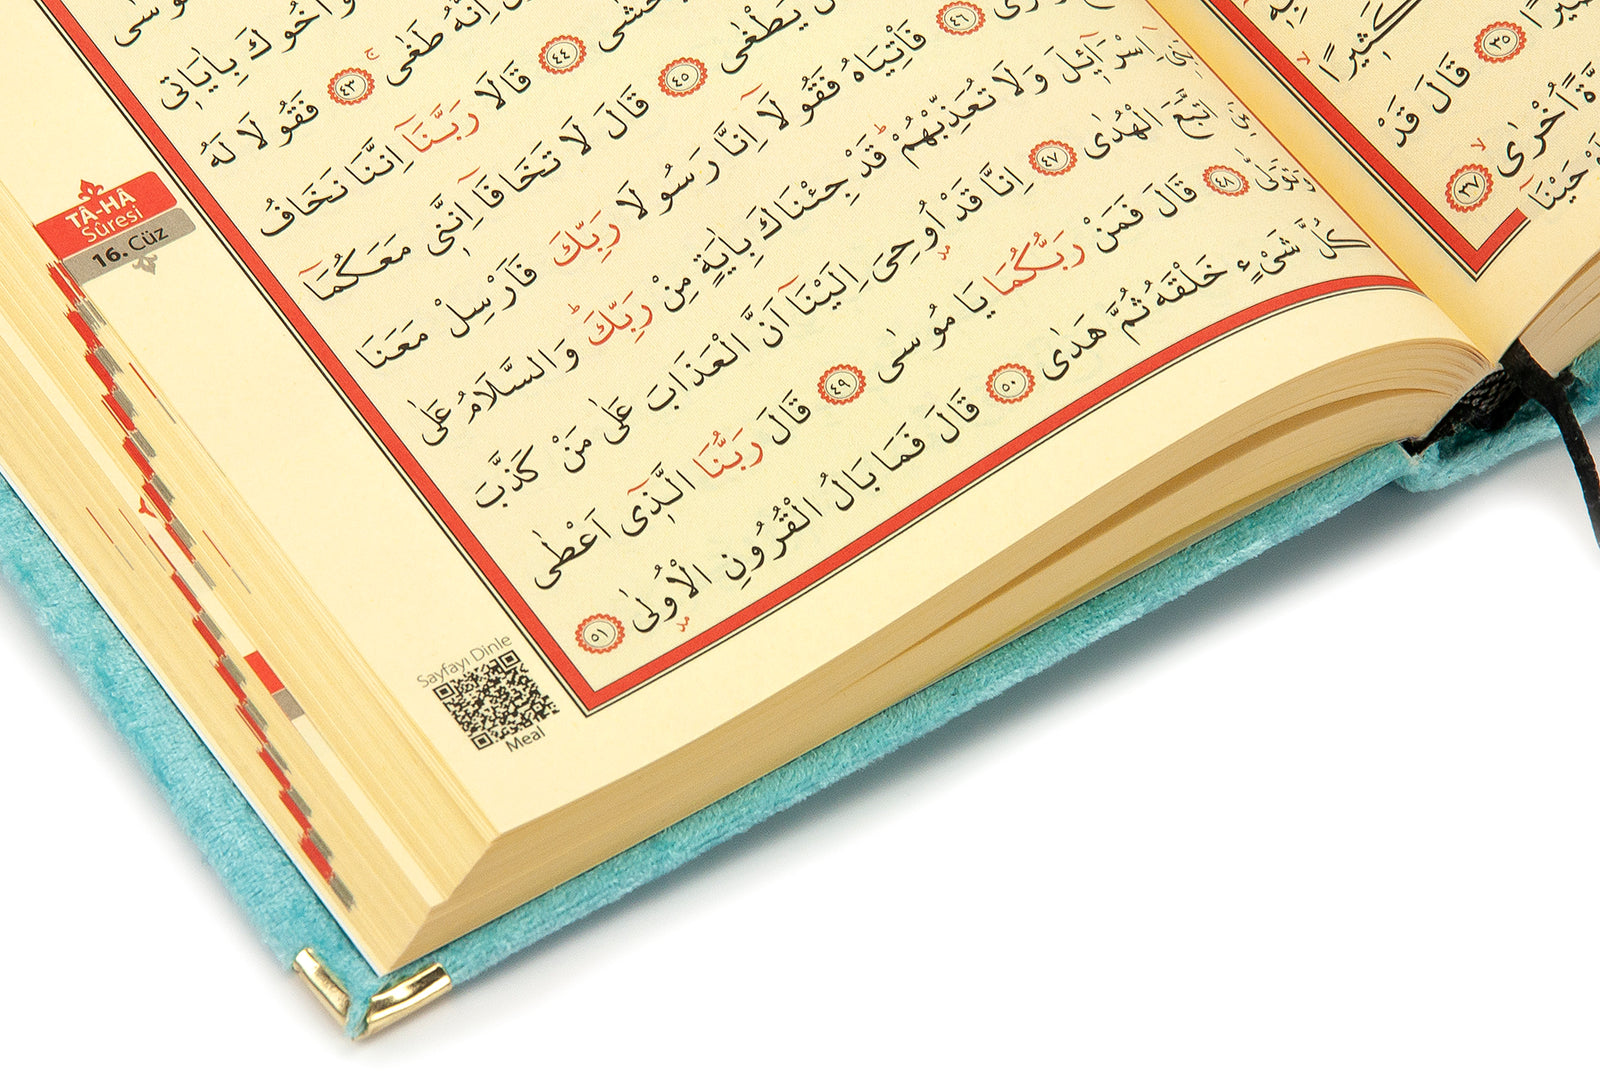 كَث۪يرًا
﴿٣٥﴾ قَالَ قَدْ
اُخْرٰىۙ ﴿٣٧﴾
وَاَخُوكَ بِاٰيَات۪ى
اِنَّهُ طَغٰىۚ ﴿٤٣﴾ فَقُولَا لَهُ
﴿٤٤﴾ قَالَا رَبَّنَٓا اِنَّنَا نَخَافُ
يَطْغٰى ﴿٤٥﴾ قَالَ لَا تَخَافَٓا اِنَّن۪ى مَعَكُمَٓا
﴿٤٦﴾ فَأْتِيَاهُ فَقُولَٓا اِنَّا رَسُولَا رَبِّكَ فَاَرْسِلْ مَعَنَا
بَن۪ٓى اِسْرَٓائ۪لَ وَلَا تُعَذِّبْهُمْۜ قَدْ جِئْنَاكَ بِاٰيَةٍ مِنْ رَبِّكَۜ وَالسَّلَامُ عَلٰى
مَنِ اتَّبَعَ الْهُدٰى ﴿٤٧﴾ اِنَّا قَدْ اُو۫حِىَ اِلَيْنَٓا اَنَّ الْعَذَابَ عَلٰى مَنْ كَذَّبَ
وَتَوَلّٰى ﴿٤٨﴾ قَالَ فَمَنْ رَبُّكُمَا يَا مُوسٰى ﴿٤٩﴾ قَالَ رَبُّنَا الَّذ۪ٓى اَعْطٰى
كُلَّ شَىْءٍ خَلْقَهُ ثُمَّ هَدٰى ﴿٥٠﴾ قَالَ فَمَا بَالُ الْقُرُونِ الْاُو۫لٰى ﴿٥١﴾
TÂ-HÂ
Sûresi
16. Cüz
Sayfayı Dinle
Meal